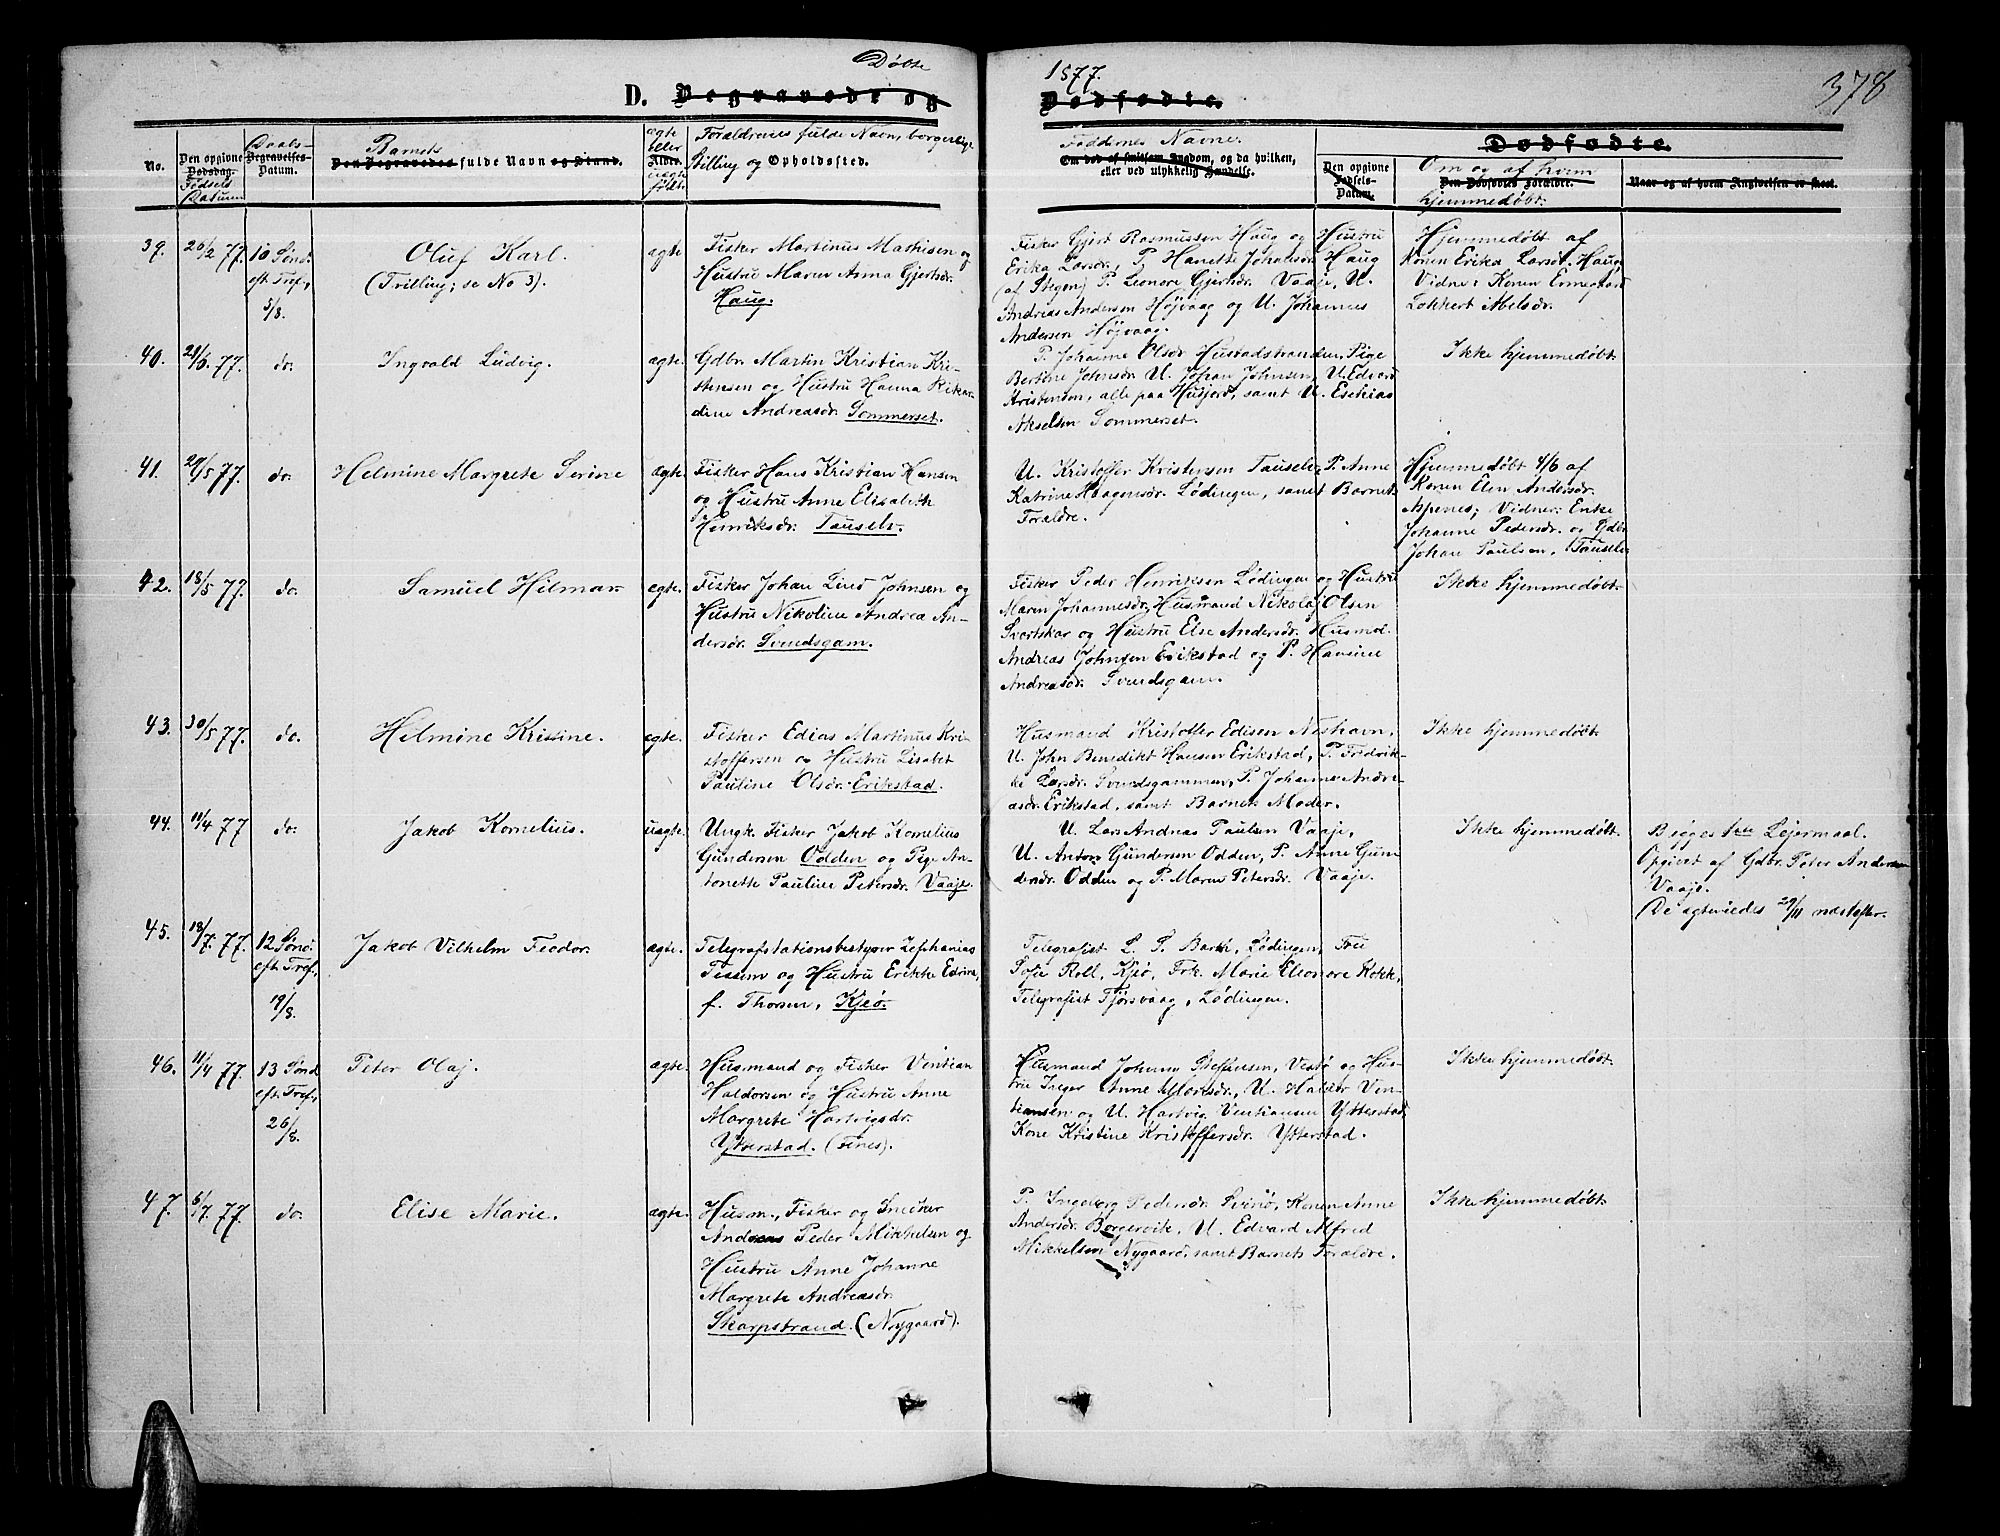 Døbte
1877.
378
D. Begravede og
Dødfødte.
No.
Den opgivne
Dødsdag.
Fødsels
Datum
Daabs-
Begravelses-
Datum.
Barnets
Den Begravedes fulde Navn og Stand.
ægte
eller
Alder.
uægte
født.
Forældrenes fulde Navn, borgerlige
Stilling og Opholdssted.
Faddernes Navne.
Om død af smitsom Sygdom, og da hvilken,
eller ved ulykkelig Hændelse.
Dødfødte.
Den opgivne
Fødsels-
Datum.
Om og af hvem
Den Dødfødtes Forældre.
hjemmedøbt.
Naar og af hvem Angivelsen er skeet.
39. 26/2 77. 10 Sønd.
eft. Tref.,
5/8.
Oluf Karl.
(Trilling; se No 3).
ægte
Fisker Martinus Mathisen og
Hustru Maren Anna Gjertsdr.
Haug.
Fisker Gjert Rasmussen Haug og Hustru
Erika Larsdr., P. Hanette Johansdr. Haug
(af Stegen) P. Leonore Gjertsdr. Vaaje, U.
Andrias Andersen Højvaag og U. Johannes
Andersen Højvaag.
Hjemmedøbt af
Konen Erika Larsdr. Haug,
Vidne: Konen Ermegaard
Lokkert Abelsdr.
40. 21/6 77. do.
Ingvald Ludvig.
ægte.
Gdbr. Martin Kristian Kri-
stensen og Hustru Hanna Rikar-
dine Andreasdr. Sommerset.
P. Johanne Olsdr. Hustadstranden, Pige
Bertine Johnsdr. U. Johan Johnsen, U. Edvard
Kristensen, alle paa Husjord, samt U. Esekias
Akselsen Sommerset.
Ikke hjemmedøbt.
41. 29/5 77. do.
Helmine Margrete Serine
ægte.
Fisker Hans Kristian Hansen
og Hustru Anne Elisabeth
Henriksdr. Tauselv.
U. Kristoffer Kristensen Tauselv, P. Anne
Katrine Haagensdr. Lødingen, samt Barnets
Forældre.
Hjemmedøbt 4/6 af
Konen Elen Andersdr.
Aspenes; Vidner: Enke
Johanne Pedersdr. og Gdbr.
Johan Paulsen, Tauselv
42. 18/5 77. do.
Samuel Hilmar
ægte.
Fisker Johan Lind Johnsen og
Hustru Nikoline Andrea An-
dersdr. Svendsgam.
Fisker Peder Henriksen Lødingen og Hustru
Maren Johannesdr., Husmand Nikolaj Olsen
Svartskar og Hustru Else Andersdr. Husmd.
Andreas Johnsen Erikstad og P. Hansine
Andreasdr. Svendsgam.
Ikke hjemmedøbt.
43. 30/5 77. do.
Helmine Kristine.
ægte.
Fisker Edias Martinus Kri-
stoffersen og Hustru Lisabet
Pauline Olsdr. Erikstad.
Husmand Kristoffer Edisen Neshavn,
U. John Benedikt Hansen Erikstad, P. Fredrik-
ke Larsdr. Svendsgammen, P. Johanne Andre-
asdr. Erikstad, samt Barnets Moder.
Ikke hjemmedøbt.
44. 11/4 77 do.
Jakob Kornelius.
uægte.
Ungk. Fisker Jakob Kornelius
Gundersen Odden og Pige An-
tonette Pauline Petersdr. Vaaje.
U. Lars Andreas Paulsen Vaaje,
U. Anton Gundersen Odden, P. Anne Gun-
dersdr. Odden og P. Maren Petersdr. Vaaje.
Ikke hjemmedøbt.
Begges 1ste Lejermaal.
Opgivet af Gdbr. Peter Andersen
Vaaje.
De ægteviedes 29/11 næstefter.
45. 18/7. 77. 12 Sønd.
eft. Tref.,
19/8.
Jakob Vilhelm Feodor.
ægte.
Telegrafstationsbestyrer Zephanias
Tessem og Hustru Erikke Edrine,
f. Thorsen, Kjeø.
Telegrafist L. P. Barth, Lødingen, Fru
Sofie Roll, Kjeø, Frk. Marie Eleonore Kokk,
Telegrafist Tjørsvaag, Lødingen.
46. 11/4 77. 13 Sønd
eft. Tref.,
26/8.
Peter Olaj.
ægte.
Husmand og Fisker Ventian
Haldorsen og Hustru Anne
Margrete Hartvigsdr.
Ytterstad. (Fines).
Husmand Johannes Steffensen, Vestø og Hus-
tru Inger Anne Monsdr., U. Haldor Ven-
tiansen og U. Hartvig Ventiansen Ytterstad,
Kone Kristine Kristoffersdr. Ytterstad.
Ikke hjemmedøbt.
47. 6/7. 77. do.
Elise Marie.
ægte.
Husm., Fisker og Snekker
Andreas Peder Mikkelsen og
Hustru Anne Johanne
Margrete Andreasdr.
Skarpstrand. (Nygaard).
P. Ingeborg Pedersdr. Svinø, Konen Anne
Andersdr. Borgervik, U. Edvard Alfred
Mikkelsen Nygaard, samt Barnets Forældre.
Ikke hjemmedøbt.